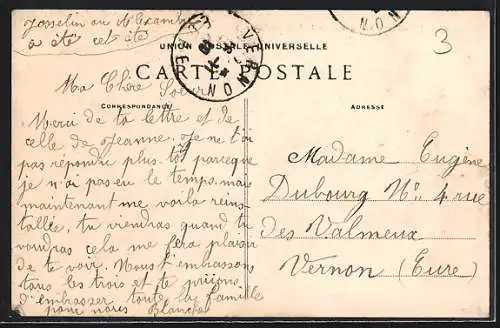 Josselin ou
a été cet été
3
UNION POSTALE UNIVERSELLE
CARTE POSTALE
VERNON
CORRESPONDANCE
ADRESSE
Ma Chère Soeur
Merci de ta lettre et de
celle de Jeanne. Je ne t'ai
pas répondre plus tôt parceque
je n'ai pas eu le temps. mais
maintenant me voila reins-
tallée, tu viendras quand tu
voudras cela me fera plaisir
de te voir. Nous t'embrassons
tous les trois et te prions
d'embrasser toute la famille
pour nous Blanche
Madame Eugène
Dubourg No 4 rue
des Valmeux
Vernon (Eure)